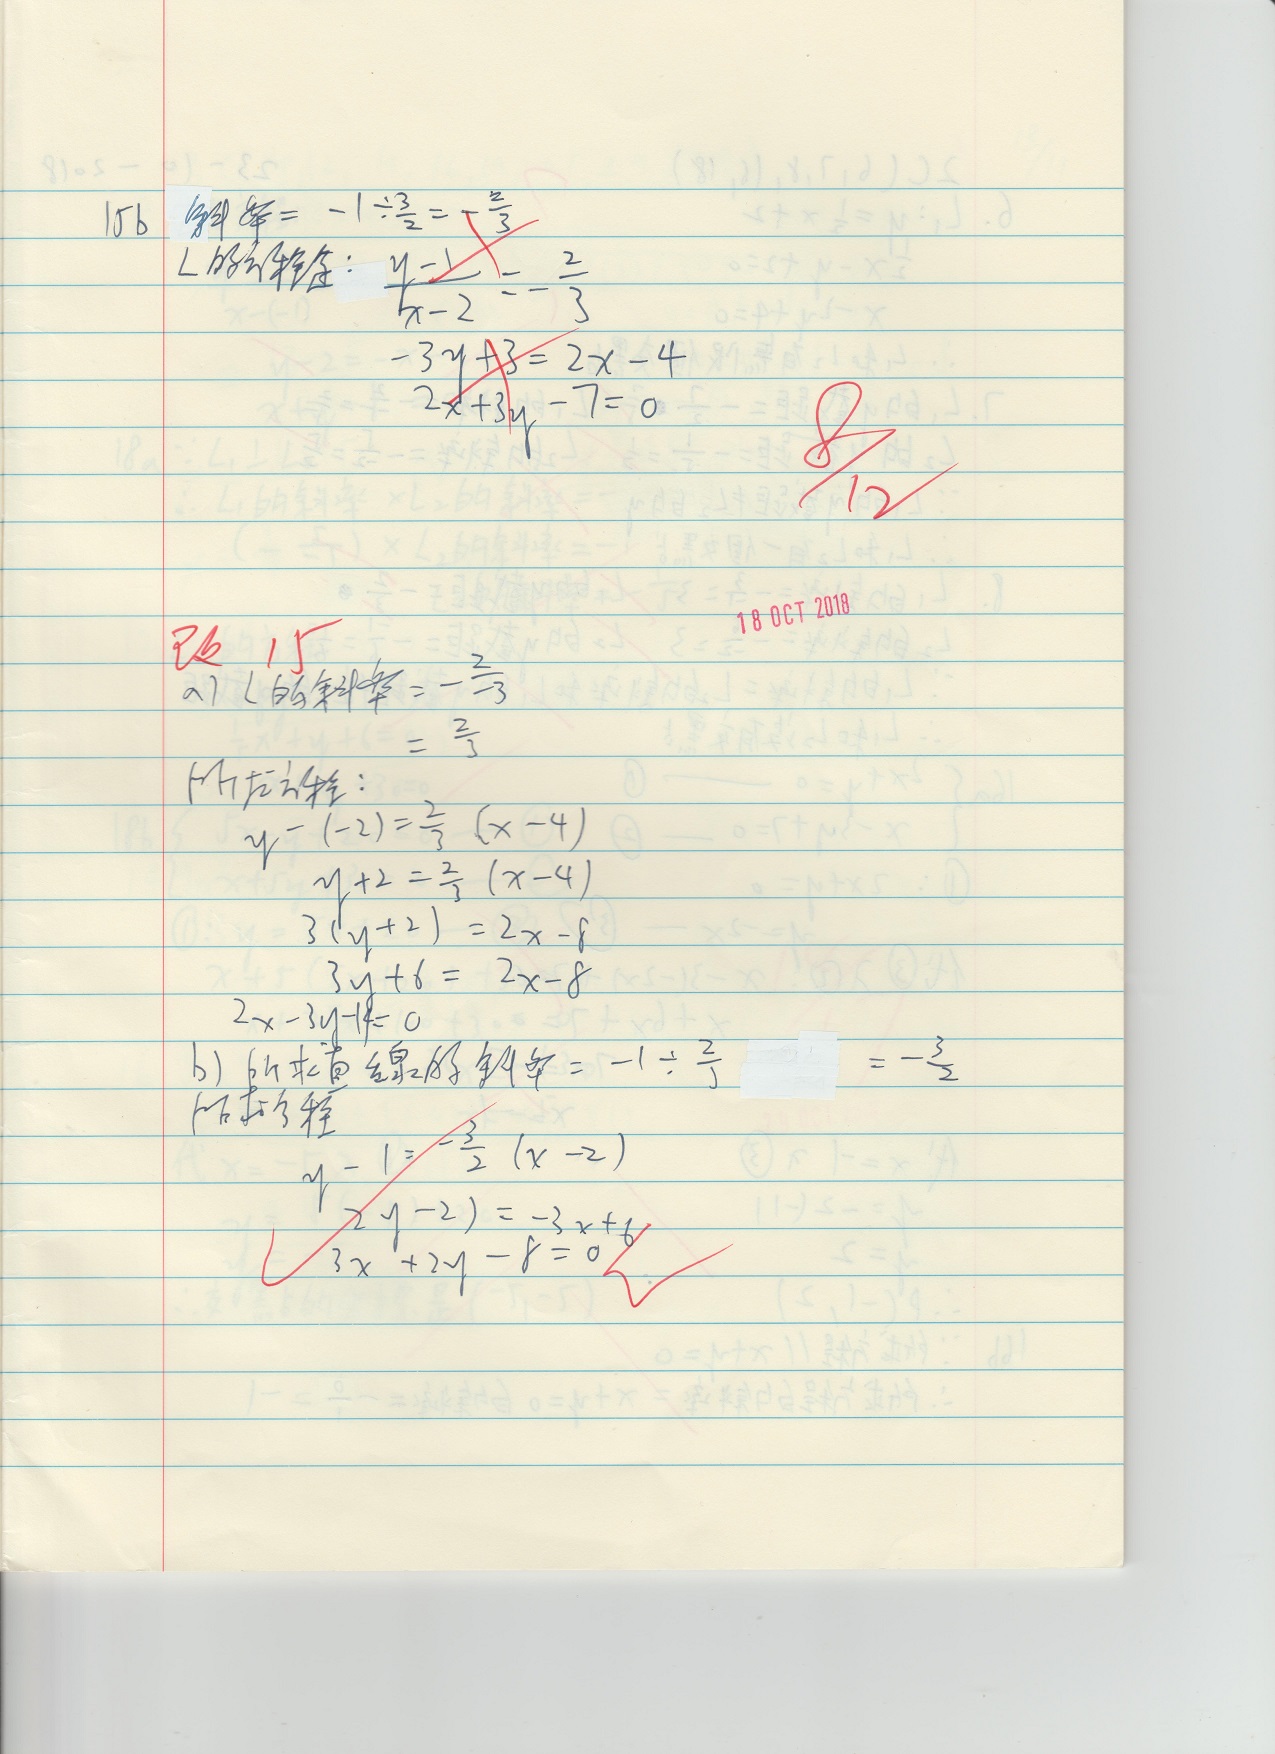 15b 斜率 = -1÷3/2 = -2/3
L的方程是: y-1/x-2 = -2/3
-3y+3 = 2x-4
2x+3y-7=0
8/12
18 OCT 2018
改 15
a) L的斜率 = -2/-3
= 2/3
所求方程:
y-(-2) = 2/3 (x-4)
y+2 = 2/3 (x-4)
3(y+2) = 2x-8
3y+6 = 2x-8
2x-3y-14=0
b) 所求直線的斜率 = -1÷2/3 = -3/2
所求方程
y-1 = -3/2 (x-2)
2y-2) = -3x+6
3x+2y-8=0